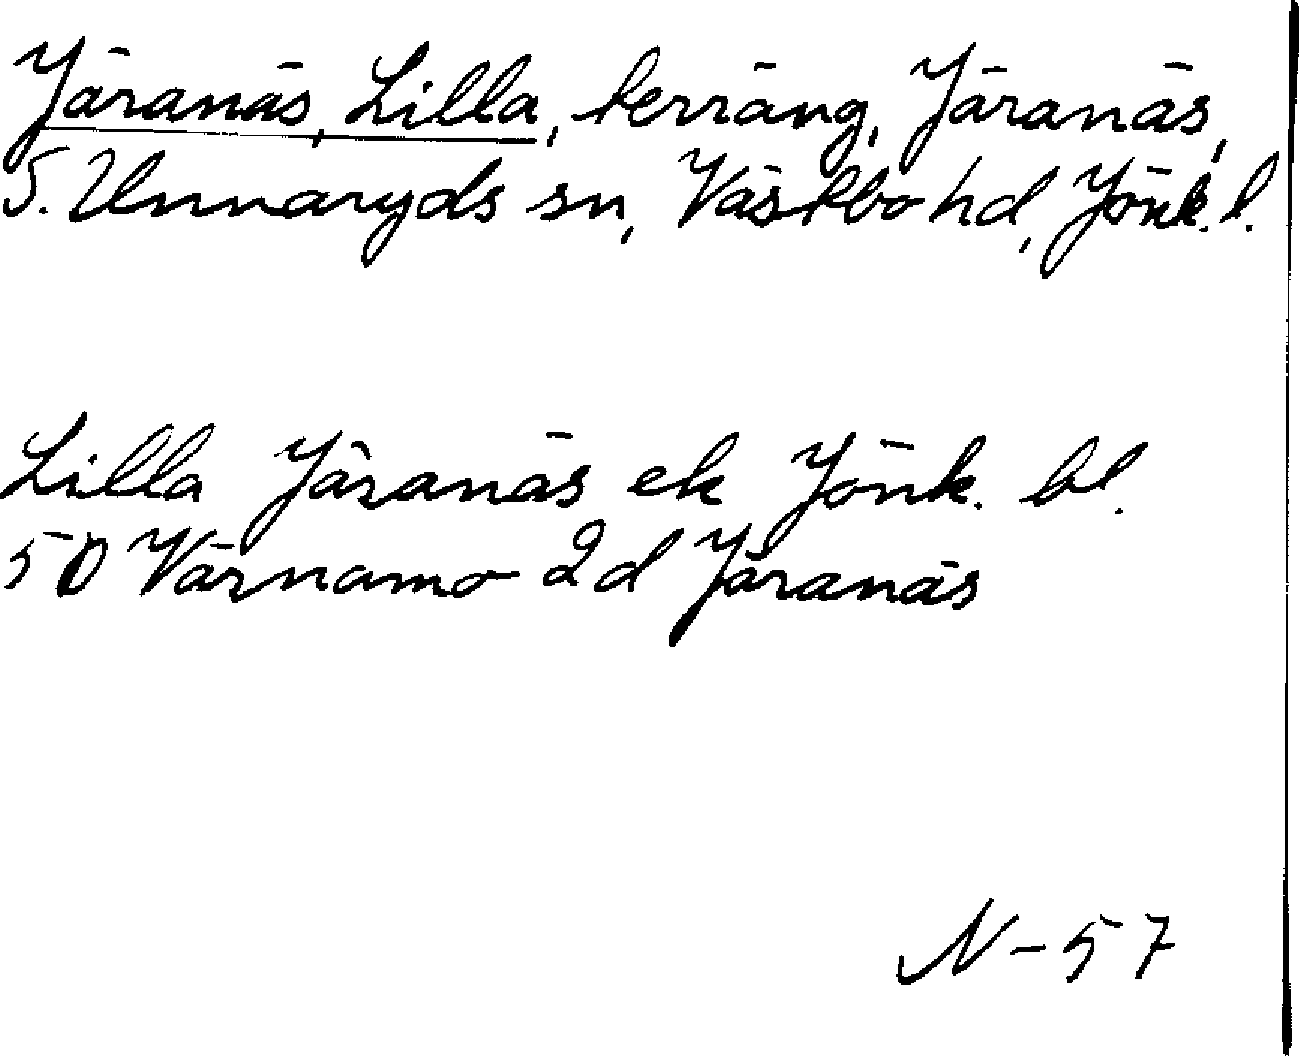 Järanäs, Lilla, terräng, Järanäs,
S. Unnaryds sn, Västbo hd, Jönk. l.
Lilla Järanäs ek Jönk. bl.
50 Värnamo 2d Järanäs
N-57